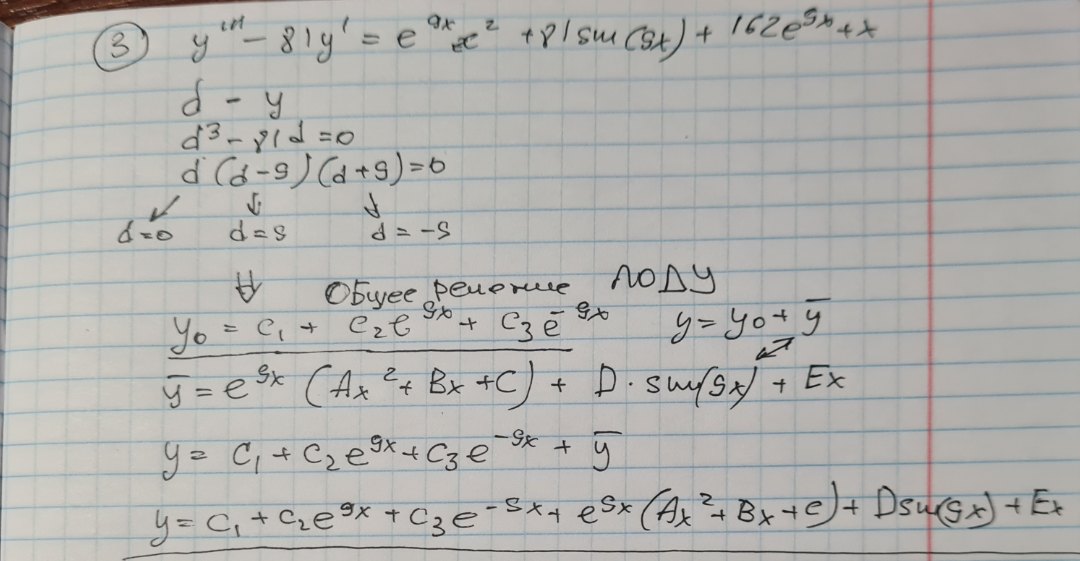 ③ y''' - 81y' = e^{9x}x² + 81sin(9x) + 162e^{9x} + x
d - y
d³ - 81d = 0
d(d-9)(d+9) = 0
↙ ↓ ↓
d=0 d=9 d=-9
⇓ Общее решение ЛОДУ
y₀ = c₁ + c₂e^{9x} + c₃e^{-9x} y = y₀ + ȳ
ȳ = e^{9x}(Ax² + Bx + C) + D·sin(9x) + Ex
y = c₁ + c₂e^{9x} + c₃e^{-9x} + ȳ
y = c₁ + c₂e^{9x} + c₃e^{-9x} + e^{9x}(Ax² + Bx + c) + Dsin(9x) + Ex